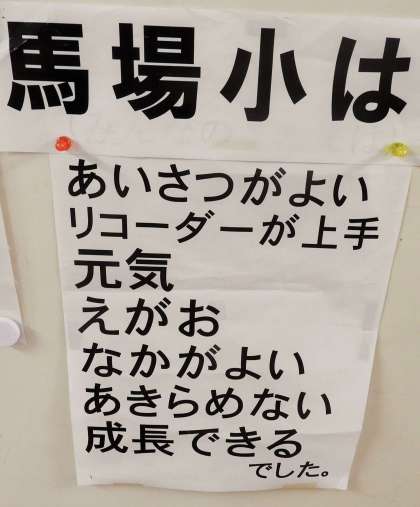 馬場小は
あいさつがよい
リコーダーが上手
元気
えがお
なかがよい
あきらめない
成長できる
でした。